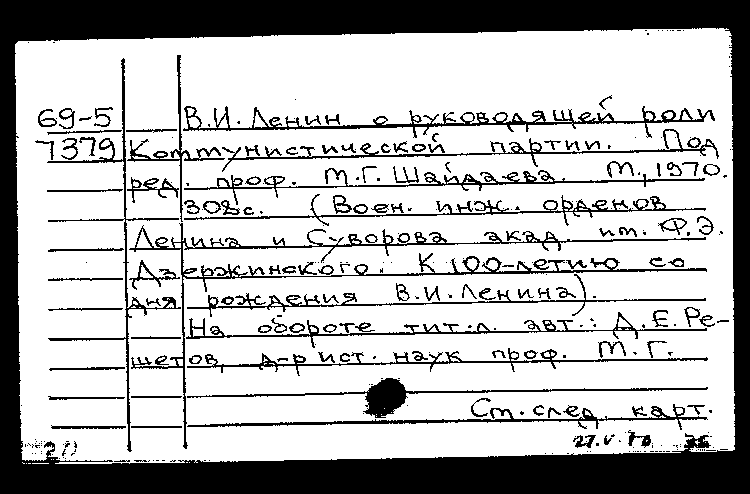 69-5 В.И. Ленин о руководящей роли
7379 Коммунистической партии. Под
ред. проф. М.Г. Шайдаева. М., 1970.
308 с. (Воен. инж. орденов
Ленина и Суворова акад. им. Ф.Э.
Дзержинского. К 100-летию со
дня рождения В.И. Ленина).
На обороте тит. л. авт.: Д.Е. Ре-
шетов, д-р ист. наук проф. М.Г.
См. след. карт.
27.V.70